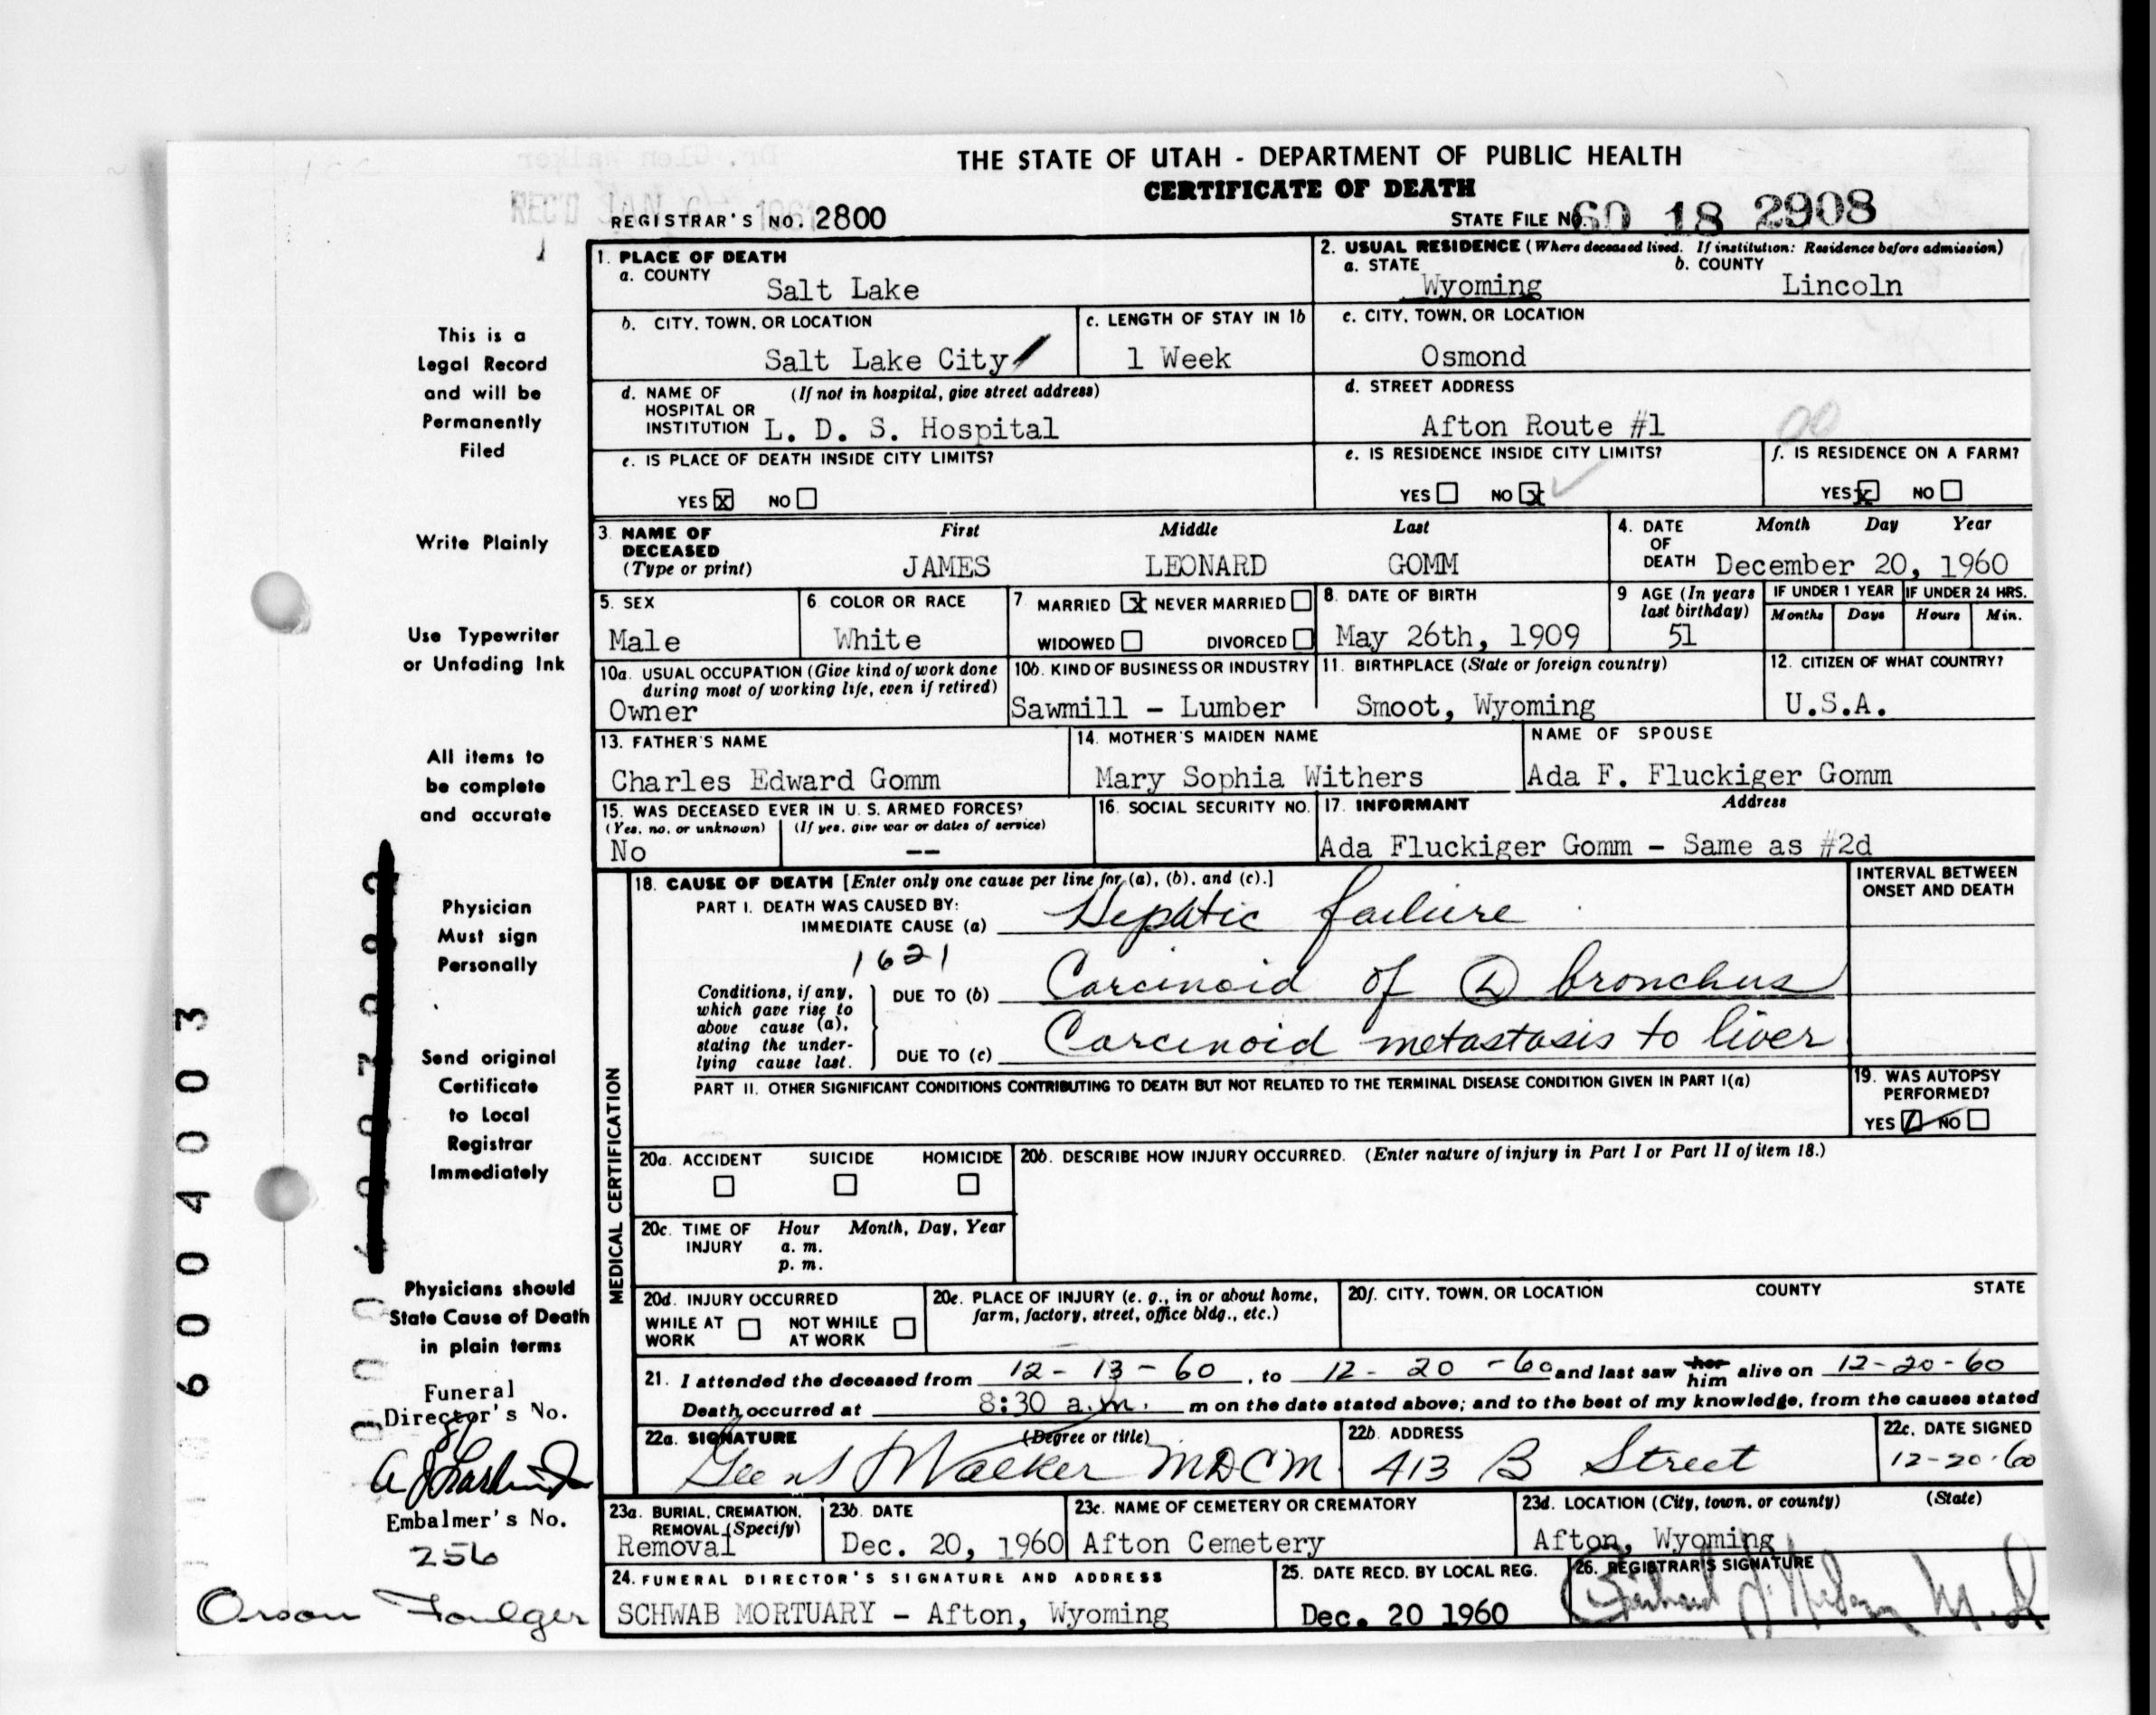 THE STATE OF UTAH - DEPARTMENT OF PUBLIC HEALTH
CERTIFICATE OF DEATH
REC'D JAN 1961
REGISTRAR'S NO. 2800
STATE FILE NO. 60 18 2908
1. PLACE OF DEATH
a. COUNTY
Salt Lake
2. USUAL RESIDENCE (Where deceased lived. If institution: Residence before admission)
a. STATE b. COUNTY
Wyoming Lincoln
b. CITY, TOWN, OR LOCATION
Salt Lake City
c. LENGTH OF STAY IN 1b
1 Week
c. CITY, TOWN, OR LOCATION
Osmond
d. NAME OF (If not in hospital, give street address)
HOSPITAL OR
INSTITUTION L. D. S. Hospital
d. STREET ADDRESS
Afton Route #1
00
e. IS PLACE OF DEATH INSIDE CITY LIMITS?
YES X NO
e. IS RESIDENCE INSIDE CITY LIMITS?
YES NO X
f. IS RESIDENCE ON A FARM?
YES X NO
3. NAME OF DECEASED (Type or print)
First Middle Last
JAMES LEONARD GOMM
4. DATE OF DEATH
Month Day Year
December 20, 1960
5. SEX
Male
6. COLOR OR RACE
White
7. MARRIED X NEVER MARRIED
WIDOWED DIVORCED
8. DATE OF BIRTH
May 26th, 1909
9. AGE (In years last birthday)
51
IF UNDER 1 YEAR IF UNDER 24 HRS.
Months Days Hours Min.
10a. USUAL OCCUPATION (Give kind of work done
during most of working life, even if retired)
Owner
10b. KIND OF BUSINESS OR INDUSTRY
Sawmill - Lumber
11. BIRTHPLACE (State or foreign country)
Smoot, Wyoming
12. CITIZEN OF WHAT COUNTRY?
U.S.A.
13. FATHER'S NAME
Charles Edward Gomm
14. MOTHER'S MAIDEN NAME
Mary Sophia Withers
NAME OF SPOUSE
Ada F. Fluckiger Gomm
15. WAS DECEASED EVER IN U. S. ARMED FORCES?
(Yes, no, or unknown) (If yes, give war or dates of service)
No --
16. SOCIAL SECURITY NO.
17. INFORMANT Address
Ada Fluckiger Gomm - Same as #2d
MEDICAL CERTIFICATION
18. CAUSE OF DEATH [Enter only one cause per line for (a), (b), and (c).]
INTERVAL BETWEEN
ONSET AND DEATH
PART I. DEATH WAS CAUSED BY:
IMMEDIATE CAUSE (a) Hepatic failure
1621
Conditions, if any,
which gave rise to
above cause (a),
stating the under-
lying cause last.
DUE TO (b) Carcinoid of L bronchus
DUE TO (c) Carcinoid metastasis to liver
PART II. OTHER SIGNIFICANT CONDITIONS CONTRIBUTING TO DEATH BUT NOT RELATED TO THE TERMINAL DISEASE CONDITION GIVEN IN PART I(a)
19. WAS AUTOPSY
PERFORMED?
YES NO
20a. ACCIDENT SUICIDE HOMICIDE
20b. DESCRIBE HOW INJURY OCCURRED. (Enter nature of injury in Part I or Part II of item 18.)
20c. TIME OF INJURY Hour Month, Day, Year
a. m.
p. m.
20d. INJURY OCCURRED
WHILE AT WORK NOT WHILE AT WORK
20e. PLACE OF INJURY (e. g., in or about home,
farm, factory, street, office bldg., etc.)
20f. CITY, TOWN, OR LOCATION COUNTY STATE
21. I attended the deceased from 12-13-60, to 12-20-60 and last saw her him alive on 12-20-60
Death occurred at 8:30 a.m. m on the date stated above; and to the best of my knowledge, from the causes stated
22a. SIGNATURE (Degree or title)
Walker MDCM
22b. ADDRESS
413 B Street
22c. DATE SIGNED
12-20-60
23a. BURIAL, CREMATION,
REMOVAL (Specify)
Removal
23b. DATE
Dec. 20, 1960
23c. NAME OF CEMETERY OR CREMATORY
Afton Cemetery
23d. LOCATION (City, town, or county) (State)
Afton, Wyoming
24. FUNERAL DIRECTOR'S SIGNATURE AND ADDRESS
SCHWAB MORTUARY - Afton, Wyoming
25. DATE RECD. BY LOCAL REG.
Dec. 20 1960
26. REGISTRAR'S SIGNATURE
This is a
Legal Record
and will be
Permanently
Filed
Write Plainly
Use Typewriter
or Unfading Ink
All items to
be complete
and accurate
Physician
Must sign
Personally
Send original
Certificate
to Local
Registrar
Immediately
Physicians should
State Cause of Death
in plain terms
Funeral
Director's No.
Embalmer's No.
256
Orson Foulger
6004003